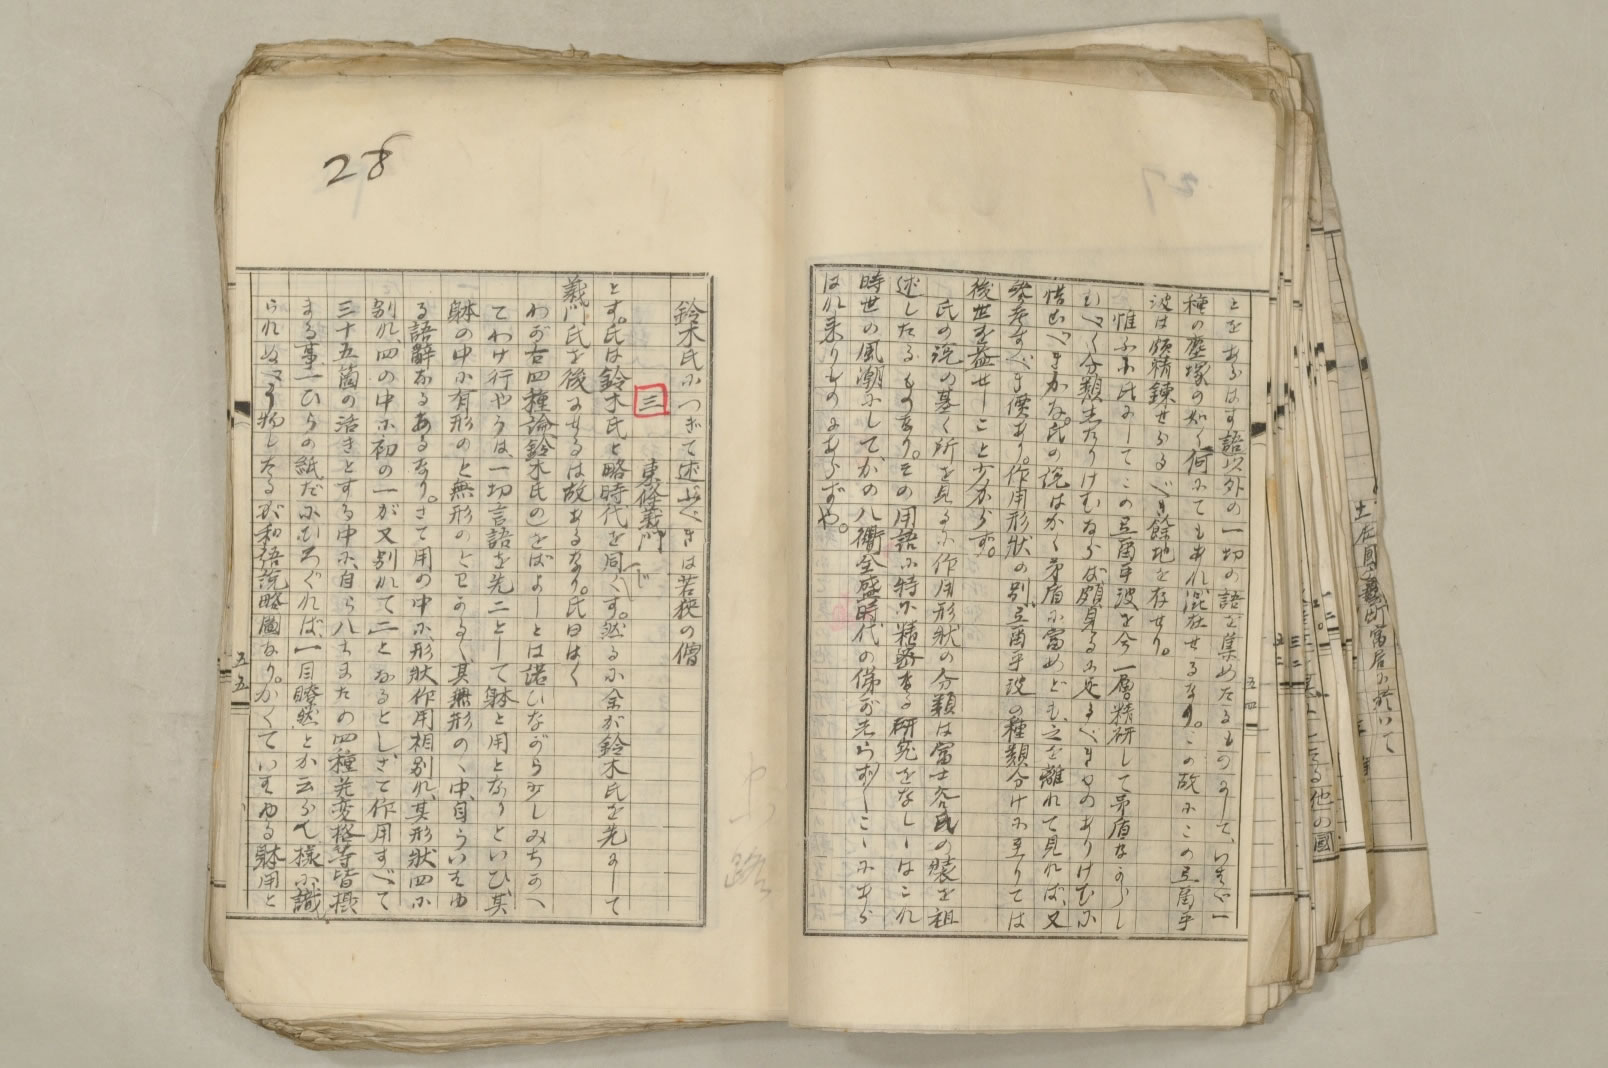 とをあらはす語以外の一切の語を集めたるものにして、いはゞ一
種の塵塚の如く何にてもあれ混在せるなり。この故にこの弖爾乎
波は頗精錬せらるべき餘地を存せり。
惟ふに氏にしてこの弖爾乎波を今一層精研して矛盾なからし
むべく分類したりけむならば頗見るに足るべきものありけむに
惜むべきかな。氏の説はかく矛盾に富めども、之を離れて見れば、又
参考すべき價あり。作用形狀の別、弖爾乎波の種類分けに至りては
後世を益せしこと少からず。
氏の説の基く所を見るに作用形狀の分類は富士谷氏の裝を祖
述したるものなり。その用語に特に精密なる研究をなししはこれ
時世の風潮にしてかの八衢全盛時代の俤が先づこゝにあら
はれ來りしものにあらずや。
28
鈴木氏につぎて述ぶべきは若狹の僧
三 東條義門
とす。氏は鈴木氏と略時代を同じくす。然るに余が鈴木氏を先にして
義門氏を後にせるは故あるなり。氏曰はく
わが古四種論鈴木氏のをばよしとは諾ひながら少しみちかへ
てわけ行やうは、一切言語を先二として躰と用となりといひ、其
躰の中に有形のと無形のとわかるく其無形のゝ中、自らいはゆ
る語辭なるあるなり。さて用の中に形狀作用相別れ、其形狀四に
別れ、四の中に初の一が又別れて二となるとし、さて作用すべて
三十五箇の活きとする中に、自ら八ちまたの四種并変格等皆摂
まる事一ひらの紙だにひろぐれば、一目瞭然とか云らん樣に識
られぬべう物したるが和語説略圖なり。かくていはゆる躰用と
五五
五四